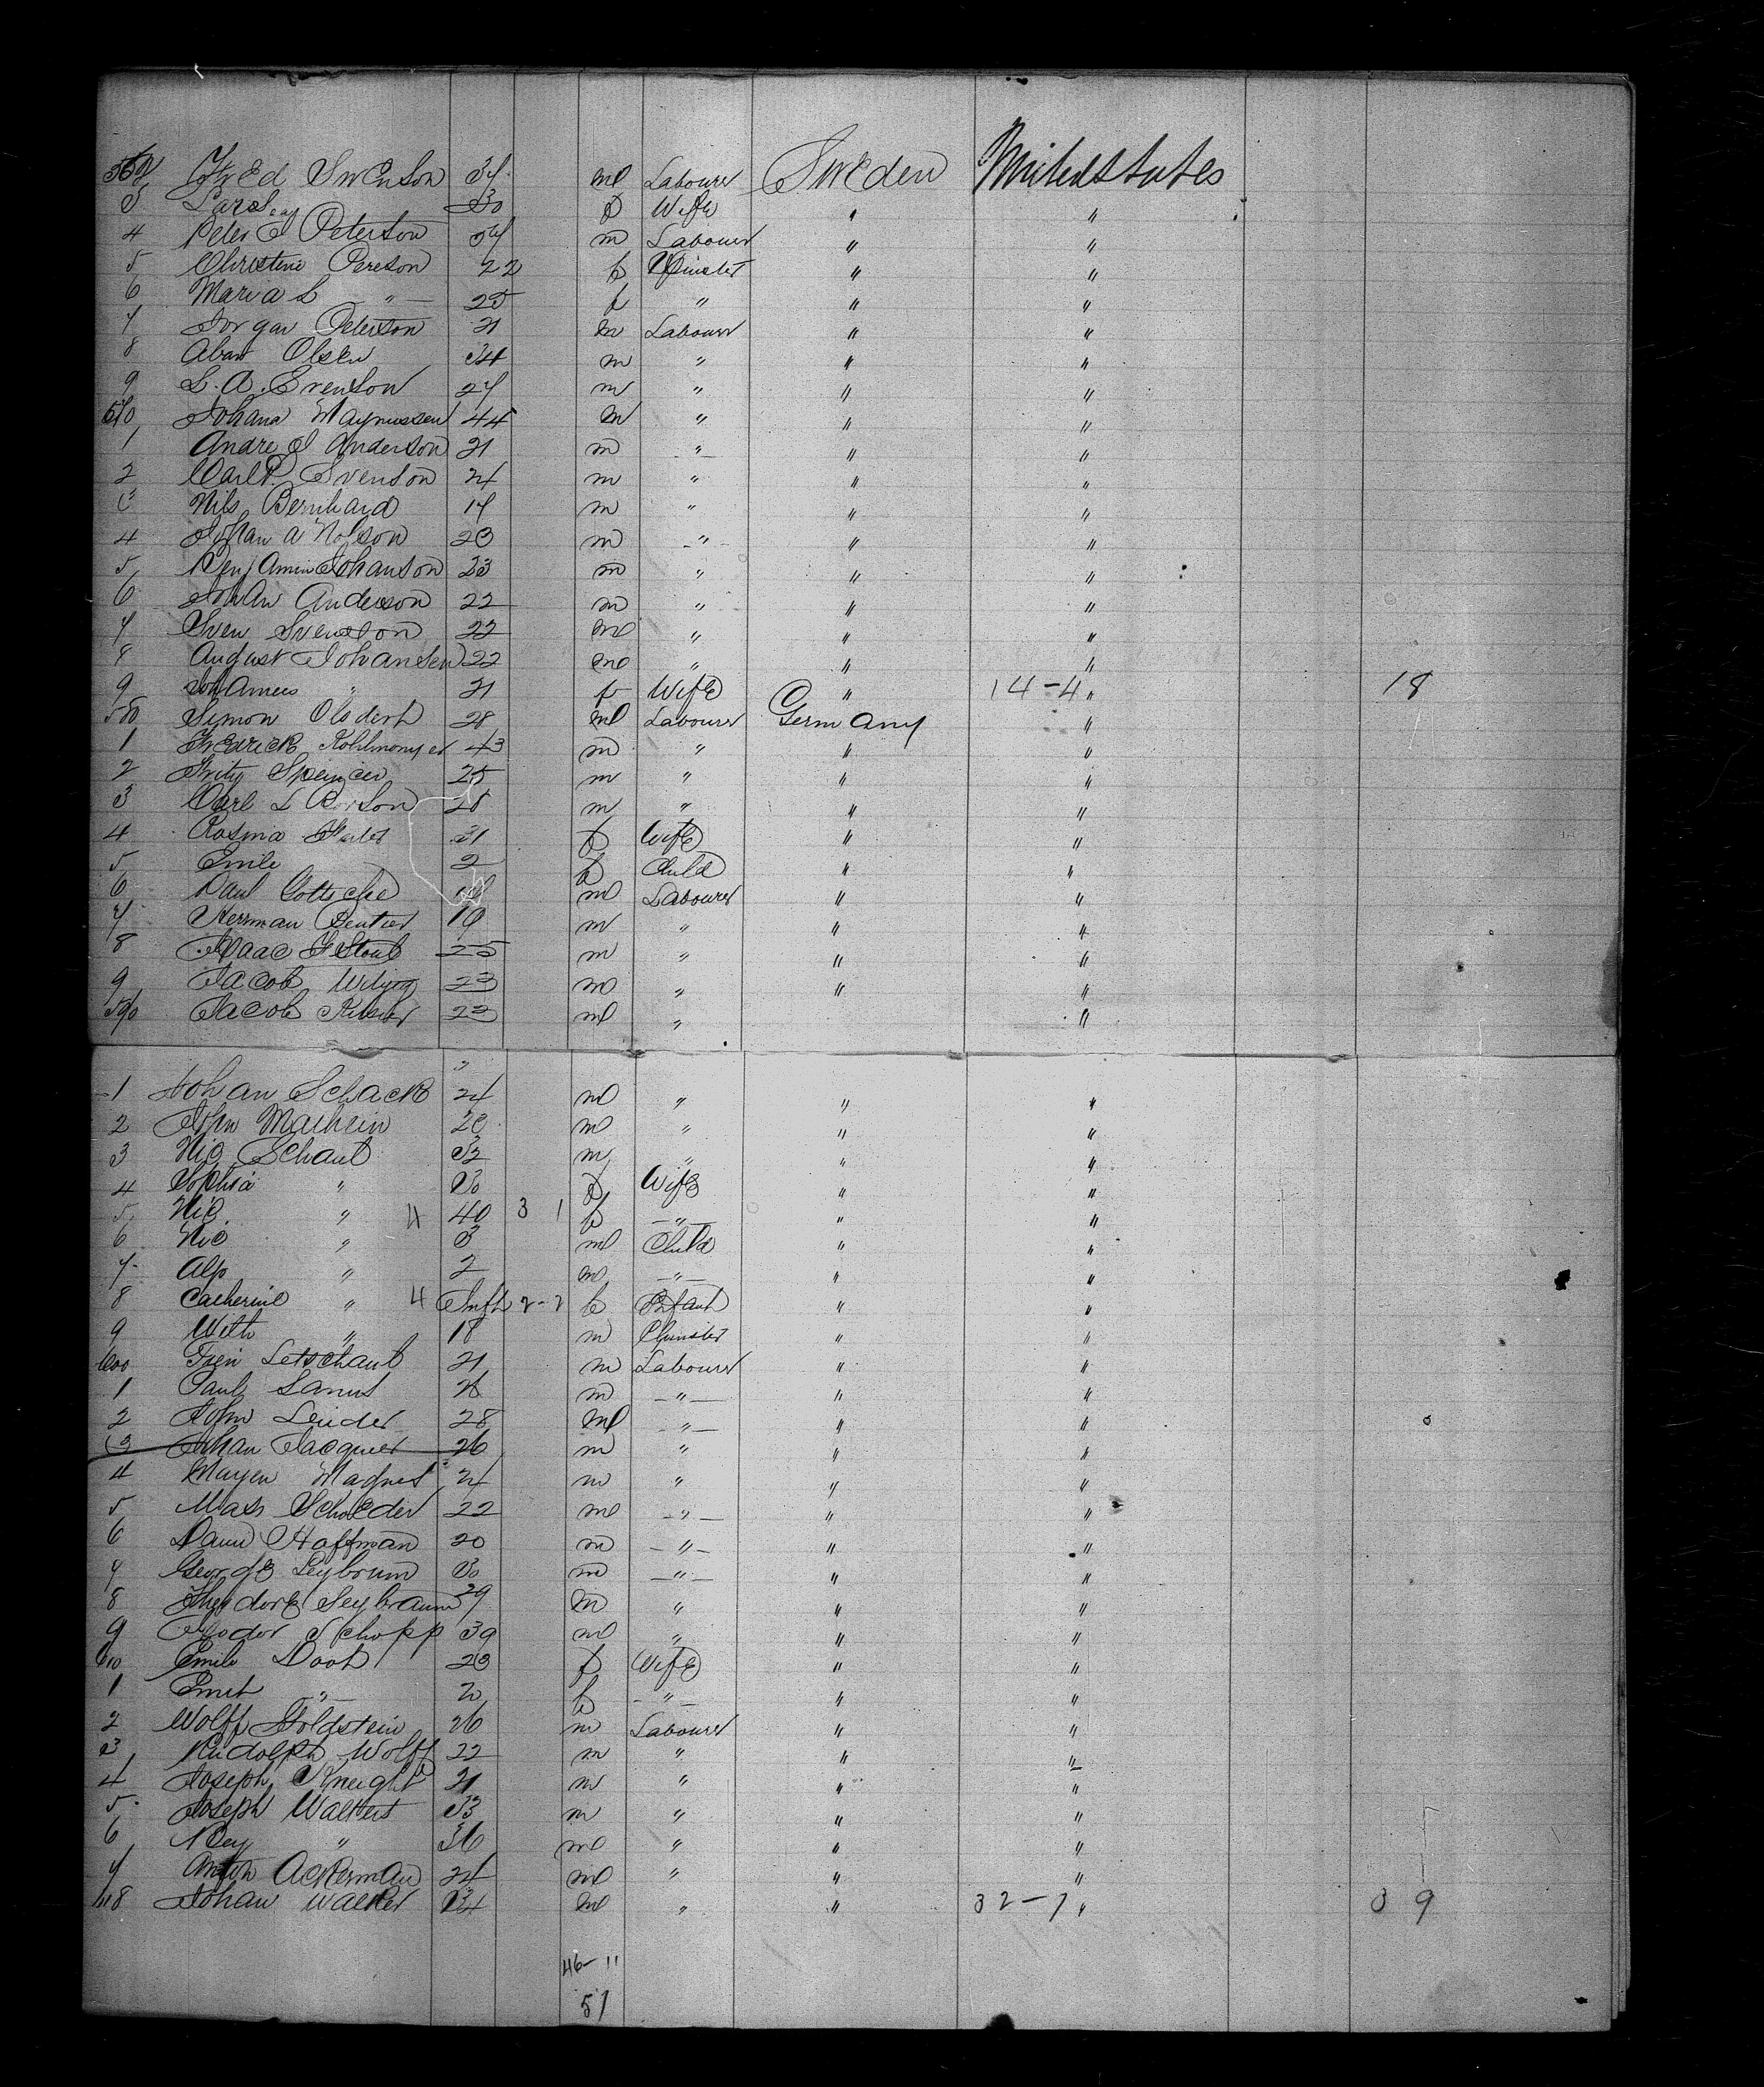 562 Fred Swenson 34 m Labourer Sweden United states
3 30 f Wife " "
4 Peter J Peterson 34 m Labourer " "
5 Christine Pereson 22 f Spinster " "
6 Maria L " 25 f " " "
7 Peterson 21 m Labourer " "
8 Olsen 34 m " " "
9 L. A. Svenson 27 m " " "
570 Johana Magnussen 44 m " " "
1 Andre J Anderson 21 m " " "
2 Carl P. Svenson 24 m " " "
3 Nils Bernhard 17 m " " "
4 Johan A Nolson 20 m " " "
5 Benjamin Johanson 23 m " " "
6 Johan Anderson 22 m " " "
7 Sven Svenson 22 m " " "
8 August Johansen 22 m " " "
9 " 21 f Wife " 14-4 " 18
580 Simon Olodert 28 m Labourer Germany "
1 Fredrick Kohlmonyer 43 m " " "
2 Fritz Speinger 25 m " " "
3 Carl L 25 m " " "
4 Rosina 31 f Wife " "
5 Emile 2 f Child " "
6 Paul Gottsche m Labourer " "
7 Herrman 19 m " " "
8 Isaac 25 m " " "
9 Jacob 23 m " " "
590 Jacob 23 m " "
1 Johan Schack 24 m " " "
2 John 20 m " " "
3 Nic Schaul 32 m " " "
4 Sophia " 30 f Wife " "
5 Nic " 4 40 3 1 f " " "
6 Nic " 3 m Child " "
7 Alp " 2 m " " "
8 Catherine " 4 Inft 2-2 f Infant " "
9 Wilh " 18 m Spinster " "
600 Letschaul 21 m Labourer " "
1 Paul Lanus m " " "
2 John Leider 28 m " " "
3 Johan Jacquer 26 m " " "
4 Mayen Magnet 24 m " " "
5 Math Schoeder 22 m " " "
6 Hoffman 20 m " " "
7 George Leybroun 30 m " " "
8 Theodore Seybraun 39 m " " "
9 Schopp 39 m " " "
610 Emile 20 f Wife " "
1 " f " " "
2 Wolff Goldstein 26 m Labourer " "
3 Rudolph Wolff 22 m " " "
4 Joseph Kneight 21 m " " "
5 Joseph Walters 33 m " " "
6 " 36 m " " "
7 Anton Ackerman 24 m " " "
618 Johan Walker 34 m " " 32-7 " 39
46-11
57